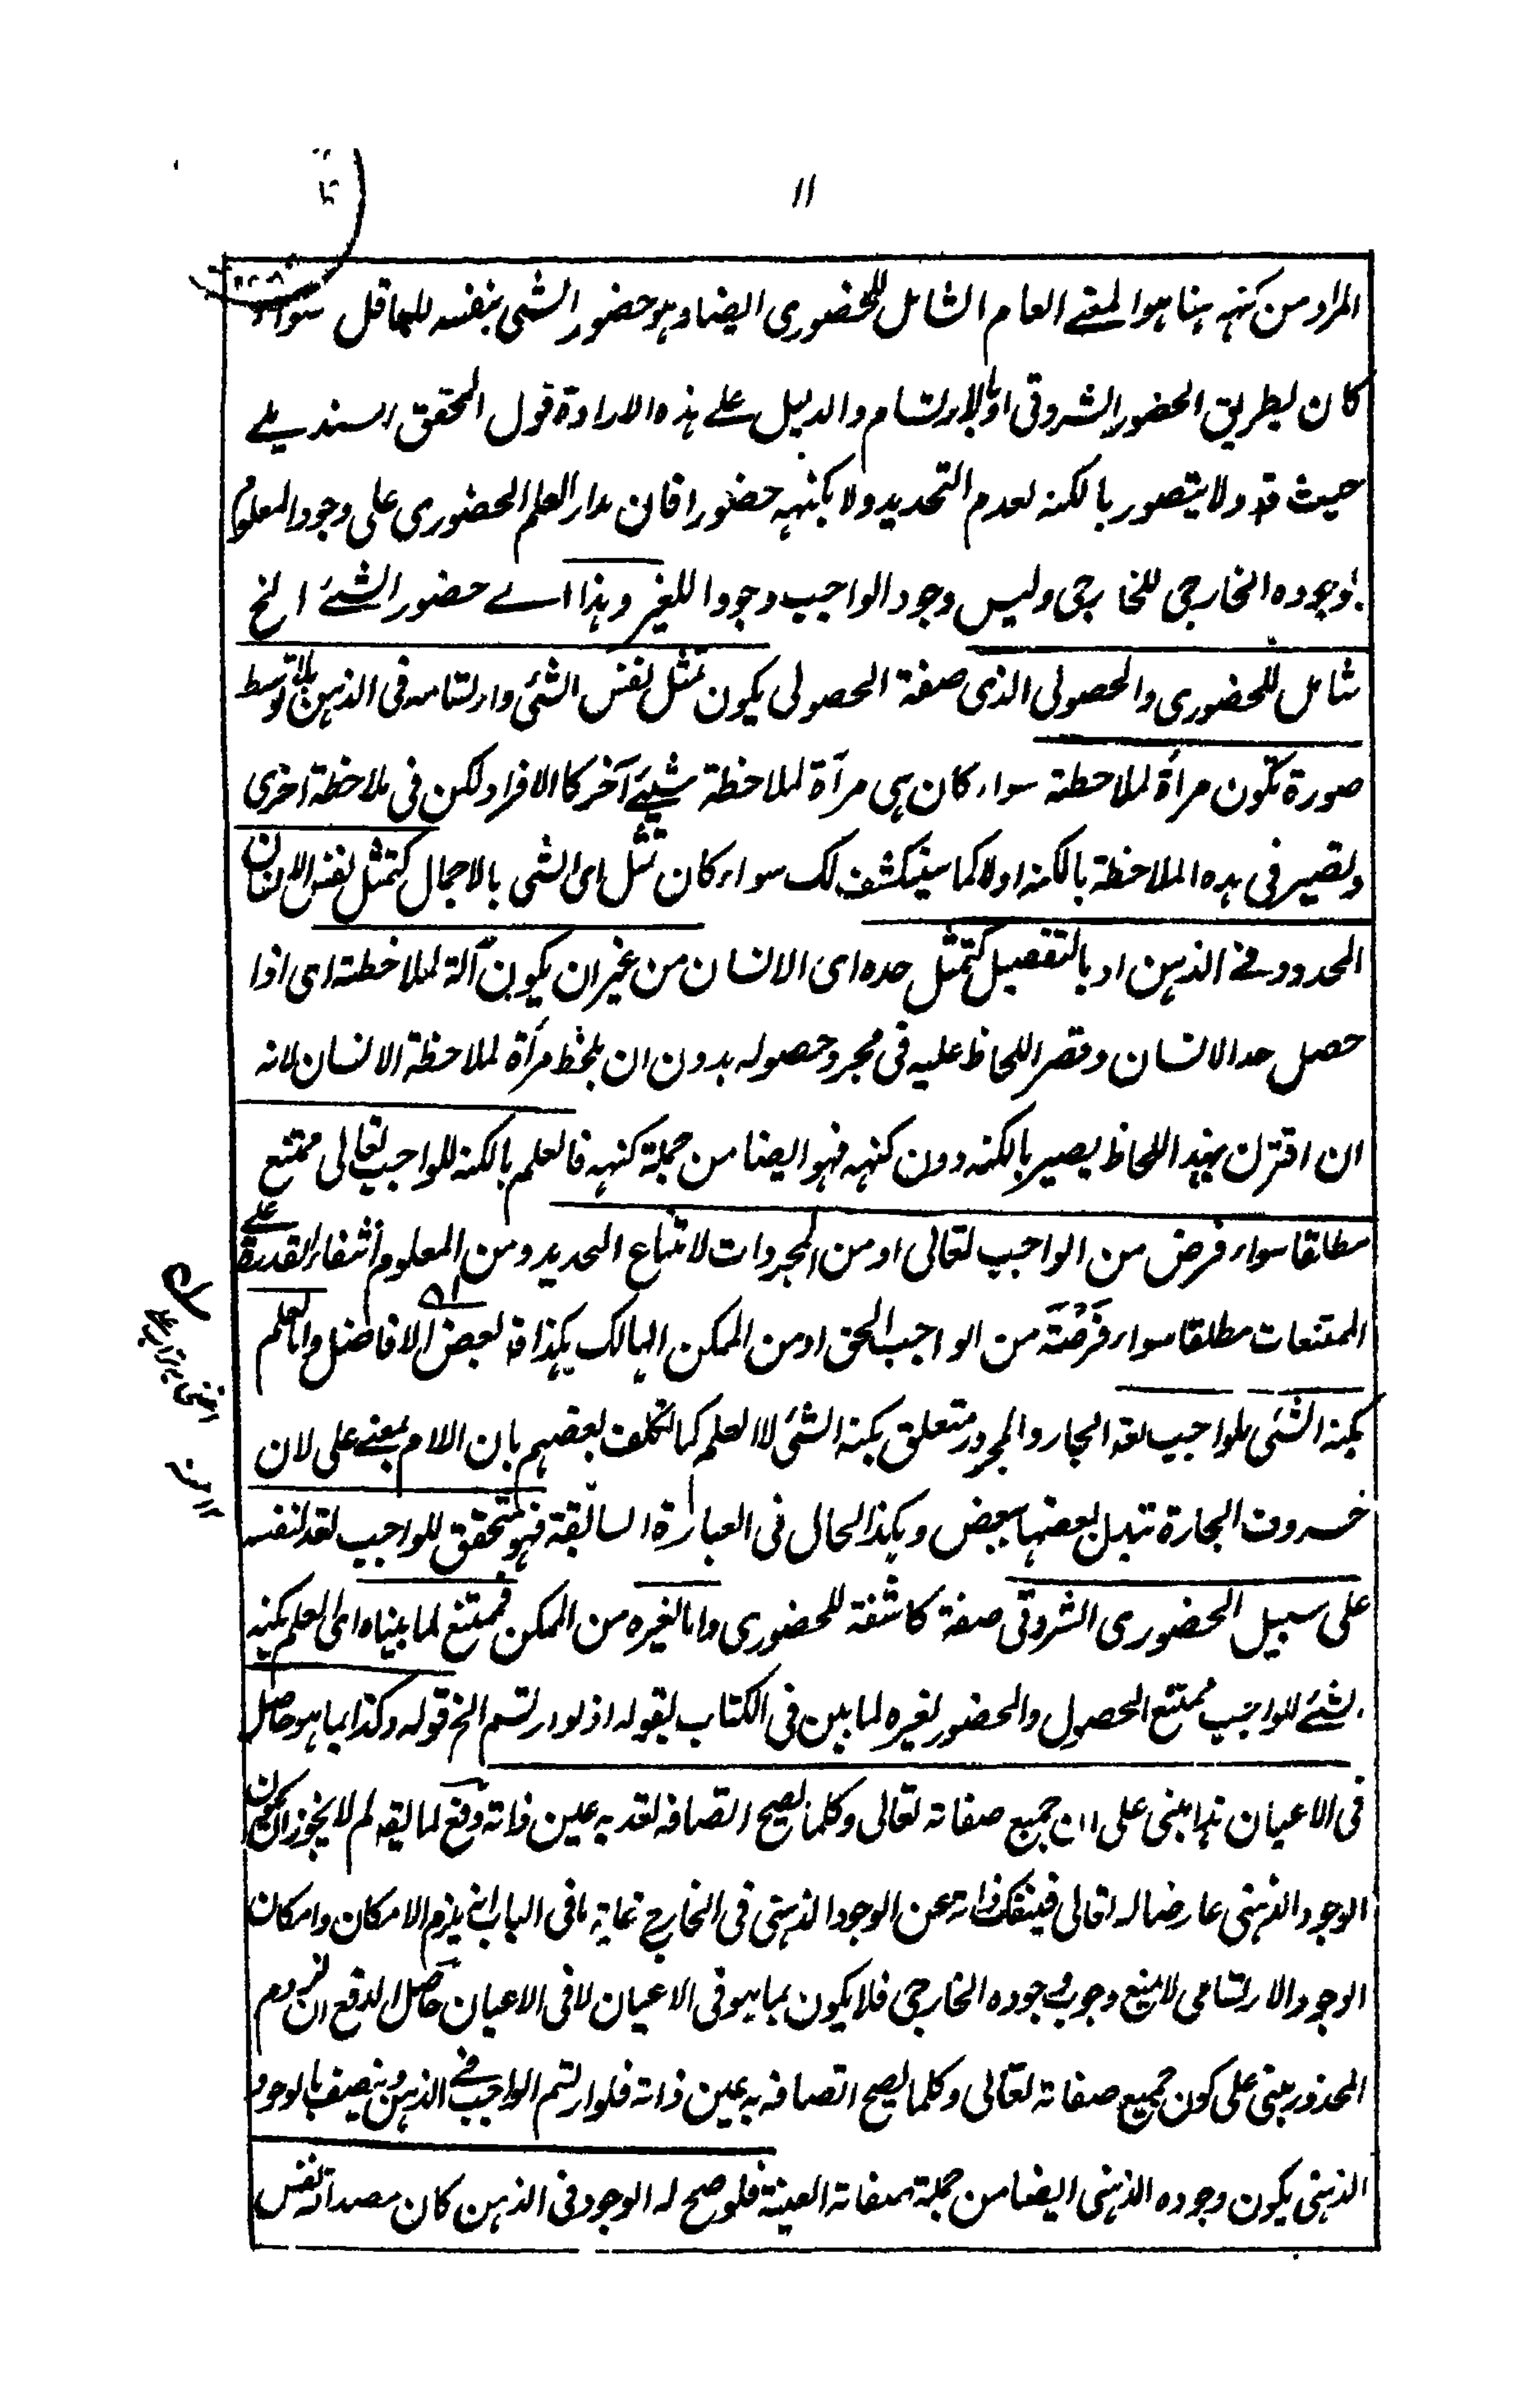 ١١
المراد من كنهه هنا هو المعنے العام الشامل للحضوری ايضا وهو حضور الشئ بنفسه للعاقل سواء
كان بطريق الحضور الشروقی او بالارتسام والدليل علے هذه الارادة قول المحقق السنديلے
حيث قال ولا يتصور بالكنه لعدم التحديد ولا بكنهه حضورا فان مدار العلم الحضوری علی وجود المعلوم
بوجوده الخارجی للخارجی وليس وجود الواجب وجودا للغير وهذا اے حضور الشئے الخ
شامل للحضوری والحصولی الذی صفة الحصولی يكون تمثل نفس الشئ وارتسامه فی الذهن بلا توسط
صورة تكون مرأة لملاحظته سواء كان هی مرآة لملاحظة شيئے آخر كالافراد لكن فی ملاحظة اخری
وتصير فی هذه الملاحظة بالكنه اولا كما سينكشف لك سواء كان تمثل ای الشئ بالاجمال كتمثل نفس الانسان
المحدود فے الذهن او بالتفصيل كتمثل حده ای الانسان من غير ان يكون آلة لملاحظته ای اذا
حصل حد الانسان وقصر اللحاظ عليه فی مجرد حصوله بدون ان يلحظ مرأة لملاحظة الانسان لانه
ان اقترن بهذا اللحاظ يصير بالكنه دون كنهه فهو ايضا من جملة كنهه فالعلم بالكنه للواجب تعالی ممتنع
مطلقا سواء فرض من الواجب تعالی او من المجردات لامتناع التحديد ومن المعلوم انتفاء القدرة علے
الممتنعات مطلقا سواء فرضته من الواجب الحق او من الممكن الهالك هكذا قال بعض الافاضل واما العلم
بكنه الشئی للواجب تعالی الجار والمجرور متعلق بكنه الشئ لا العلم كما تكلف بعضهم بان اللام بمعنے علی لان
حروف الجارة تبدل بعضها ببعض وهكذا الحال فی العبارة السابقة فهو متحقق للواجب تعالی لنفسه
علی سبيل الحضوری الشروقی صفة كاشفة للحضوری واما لغيره من الممكن فممتنع لما بيناه ای العلم بكنه
الشئے للواجب ممتنع الحصول والحضور لغيره لما بين فی الكتاب بقوله اذ لو ارتسم الخ قوله وكذا بما هو حاصل
فی الاعيان هذا مبنی علی ان جميع صفاته تعالی وكلما يصح اتصافه تعالی به عين ذاته دفع لما يقال لم لا يجوز ان يكون
الوجود الذهنی عارضا له تعالی فينفك ذاته عن الوجود الذهنی فی الخارج غاية ما فی الباب انه يلزم الامكان وامكان
الوجود الارتسامی لا يمنع وجوب وجوده الخارجی فلا يكون بما هو فی الاعيان لا فی الاعيان حاصل الدفع ان لزوم
المحذور مبنی علی كون جميع صفاته تعالی وكلما يصح اتصافه به عين ذاته فلو ارتسم الواجب فے الذهن ويتصف بالوجود
الذهنی يكون وجوده الذهنی ايضا من جملة صفاته العينية فلو صح له الوجود فی الذهن كان مصداقه نفس